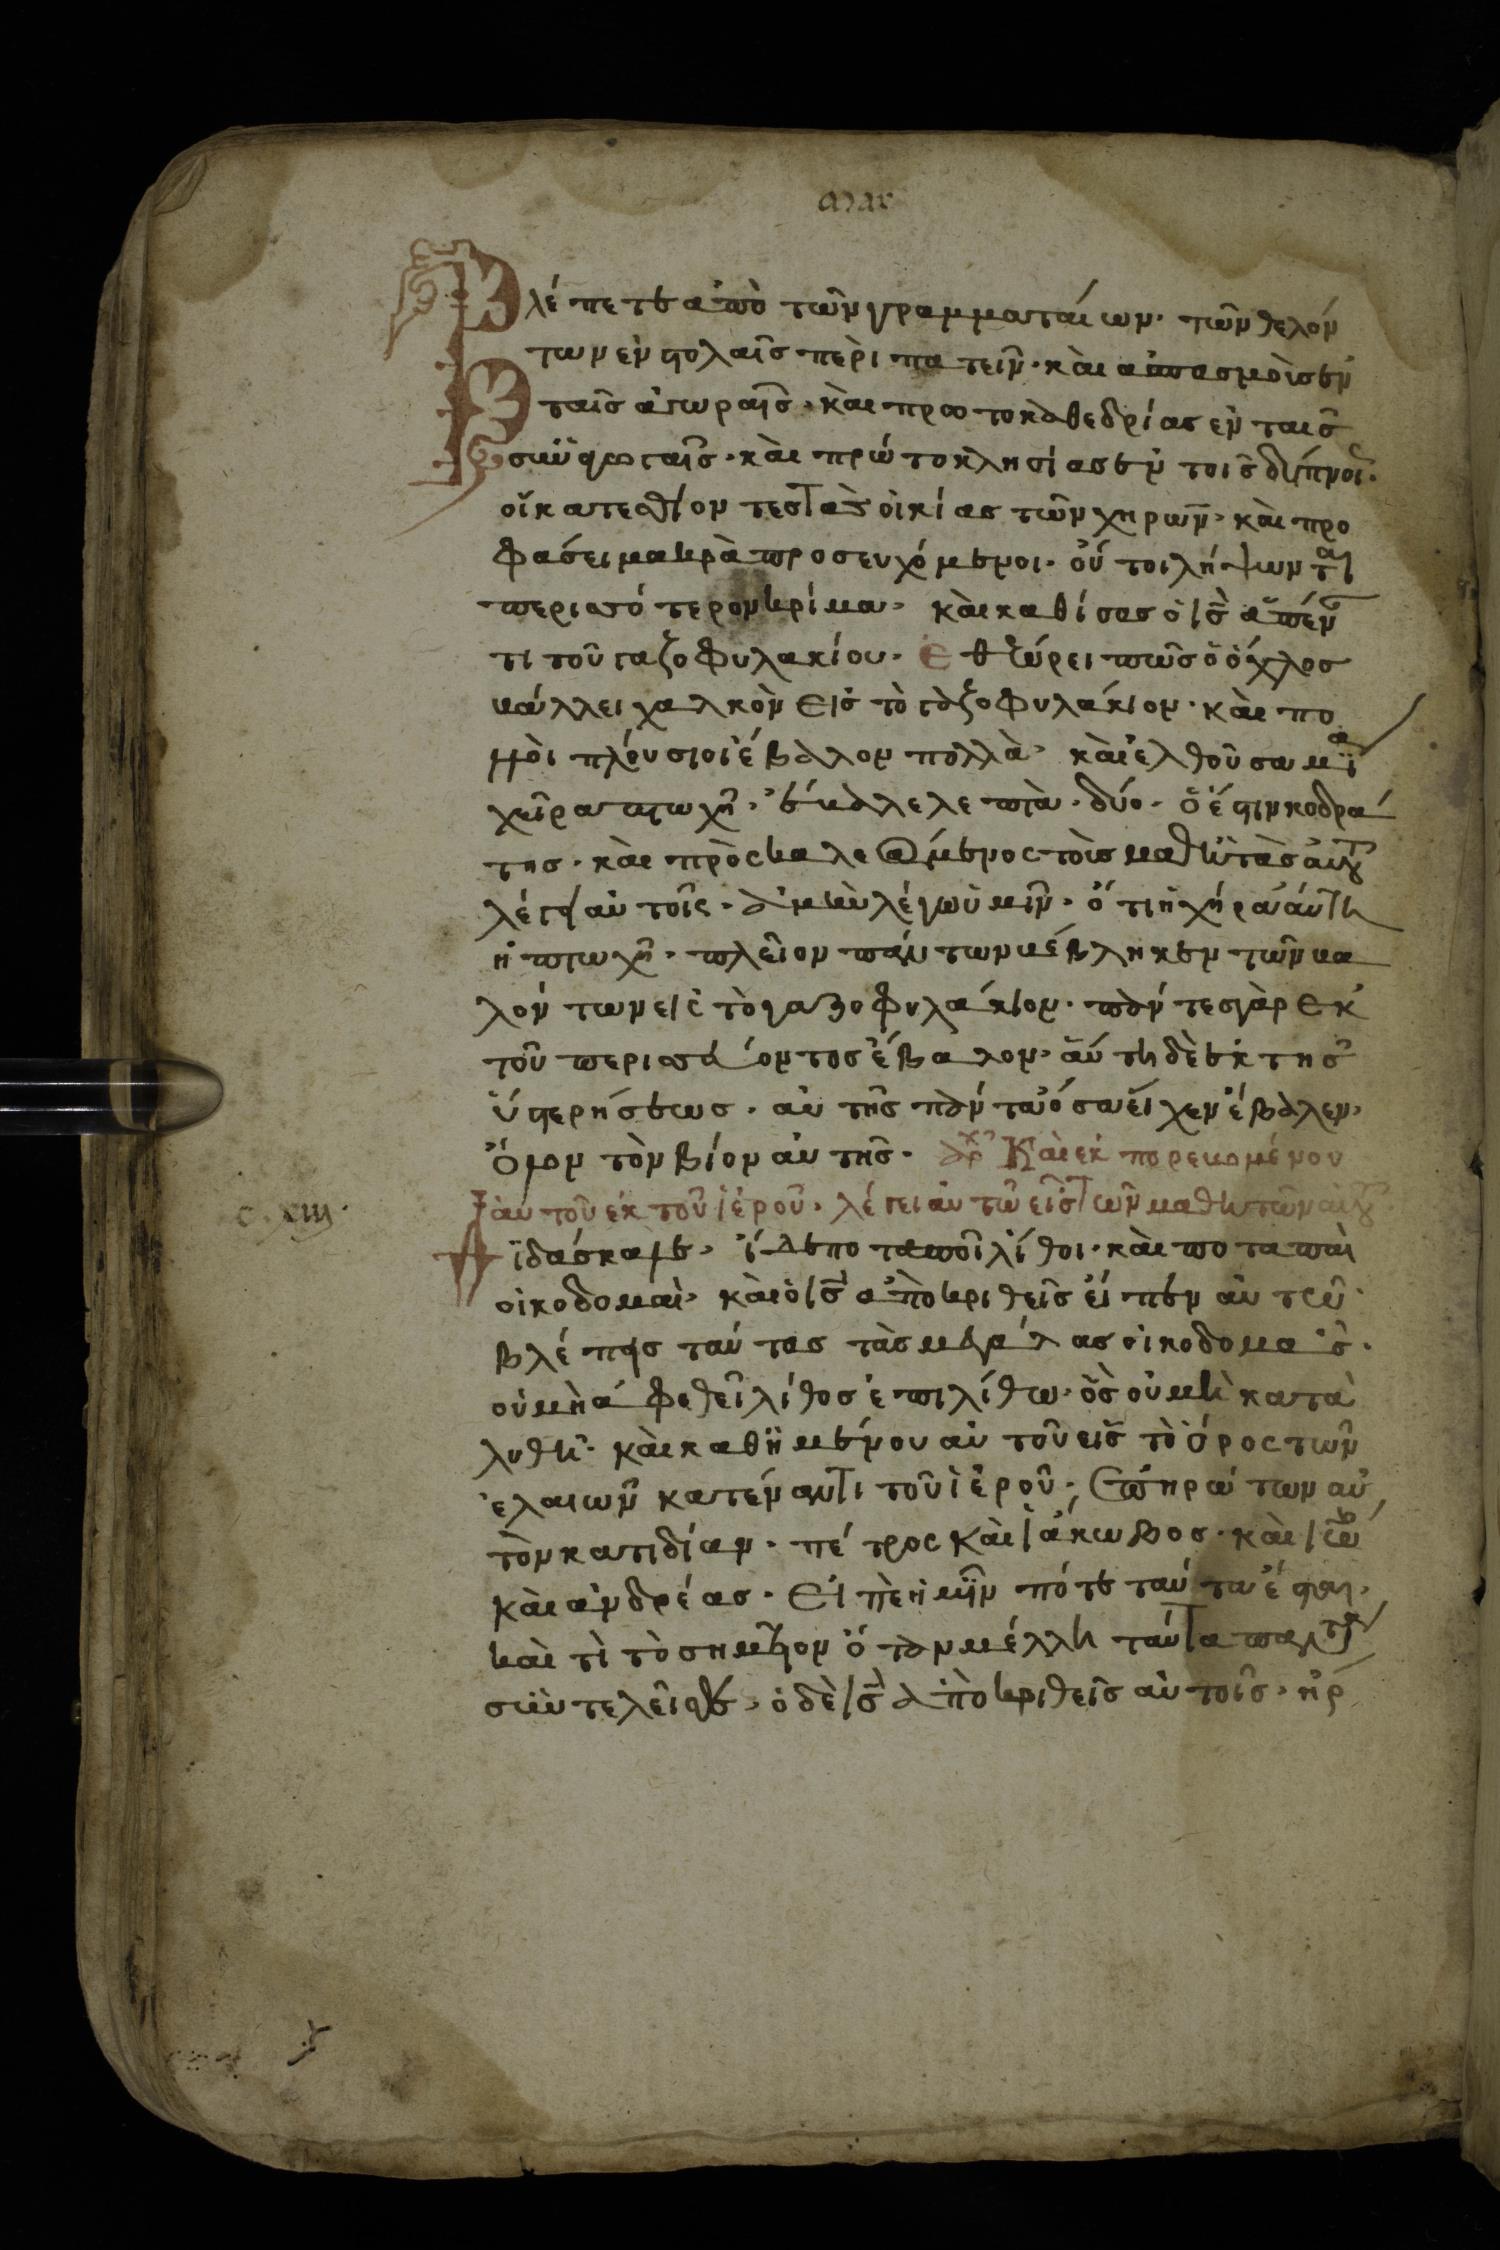 mar
Βλέπετε ἀπὸ τῶν γραμματαίων· τῶν θελόν
των ἐν στολαῖς περιπατεῖν· καὶ ἀσπασμοὶς ἐν
ταῖς ἀγωραῖς· καὶ πρωτοκαθεδρίας ἐν ταις
συναγωγαῖς· καὶ πρώτοκλησίας ἐν τοῖς δείπνοις·
οἵ κατεσθίοντες τὰς οἰκίας τῶν χηρῶν· καὶ προ
φάσει μακρὰ προσευχόμενοι· οὗτοι λήψωνται
περισσότερον κρίμα· καὶ καθίσας ὁ ις ἀπέναν
τι τοῦ γαζοφυλακίου· Εθεώρει πῶς ὁ ὄχλος
βάλλει χαλκὸν εἰς τὸ γαζοφυλάκιον· καὶ πο
λλὸι πλούσιοι ἔβαλον πολλὰ· καὶ ἐλθοῦσα μία
χεῖρα πτωχῆ· ἔβαλε λεπτὰ· δύο· ὅ ἐστιν κοδρά
της· καὶ πρὸσκαλεσάμενος τοὶς μαθητὰς αὐτοῦ
λέγει αὐτοῖς· ἀμὴν λέγω ὑμῖν· ὅτι ἡ χήρα αὕτη
ἡ πτωχῆ· πλεῖον πάντων βέβληκεν τῶν βα
λόντων εἰς τὸ γαζοφυλάκιον· πάντες γὰρ ἐκ
τοῦ περισσεύοντος ἔβαλον· αὕτη δὲ ἐκ τῆς
ὑστερήσεως· αὐτῆς πάντα ὅσα εἶχεν ἔβαλεν·
Ὅλον τὸν βίον αὐτῆς· ἀρχ Καὶ ἐκπορευομένου
αὐτοῦ ἐκ τοῦ ἱεροῦ· λέγει αὐτῶ εἷς τῶν μαθητῶν αὐτοῦ
Διδάσκαλε· ἴδε ποταποῖ λίθοι· καὶ ποταπαὶ
οἰκοδομαὶ· καὶ ὁ ις ἀποκριθεῖς εἶπεν αὐτῶ
βλέπεις ταύτας τὰς μεγάλας οἰκοδομάς·
οὐ μὴ ἀφεθεῖ λίθος ἐπι λίθω· ὃς οὐ μὴ κατα
λυθῆ· καὶ καθημένου αὐτοῦ εἰς τὸ ὄρος τῶν
ἐλαιῶν κατέναντι τοῦ ἱεροῦ· Ἐπηρώτων αὐ
τὸν κατιδίαν· πέτρος καὶ ἰάκωβος· καὶ ιω
καὶ ἀνδρέας· Εἰπὲ ἡμῖν πότε ταύτα ἔσται·
καὶ τὶ τὸ σημεῖον ὅταν μέλλη ταύτα πάντα
συντελεῖσθαι· ὁ δὲ ις ἀποκριθεῖς αὐτοῖς· ἤρ
c. xiij.